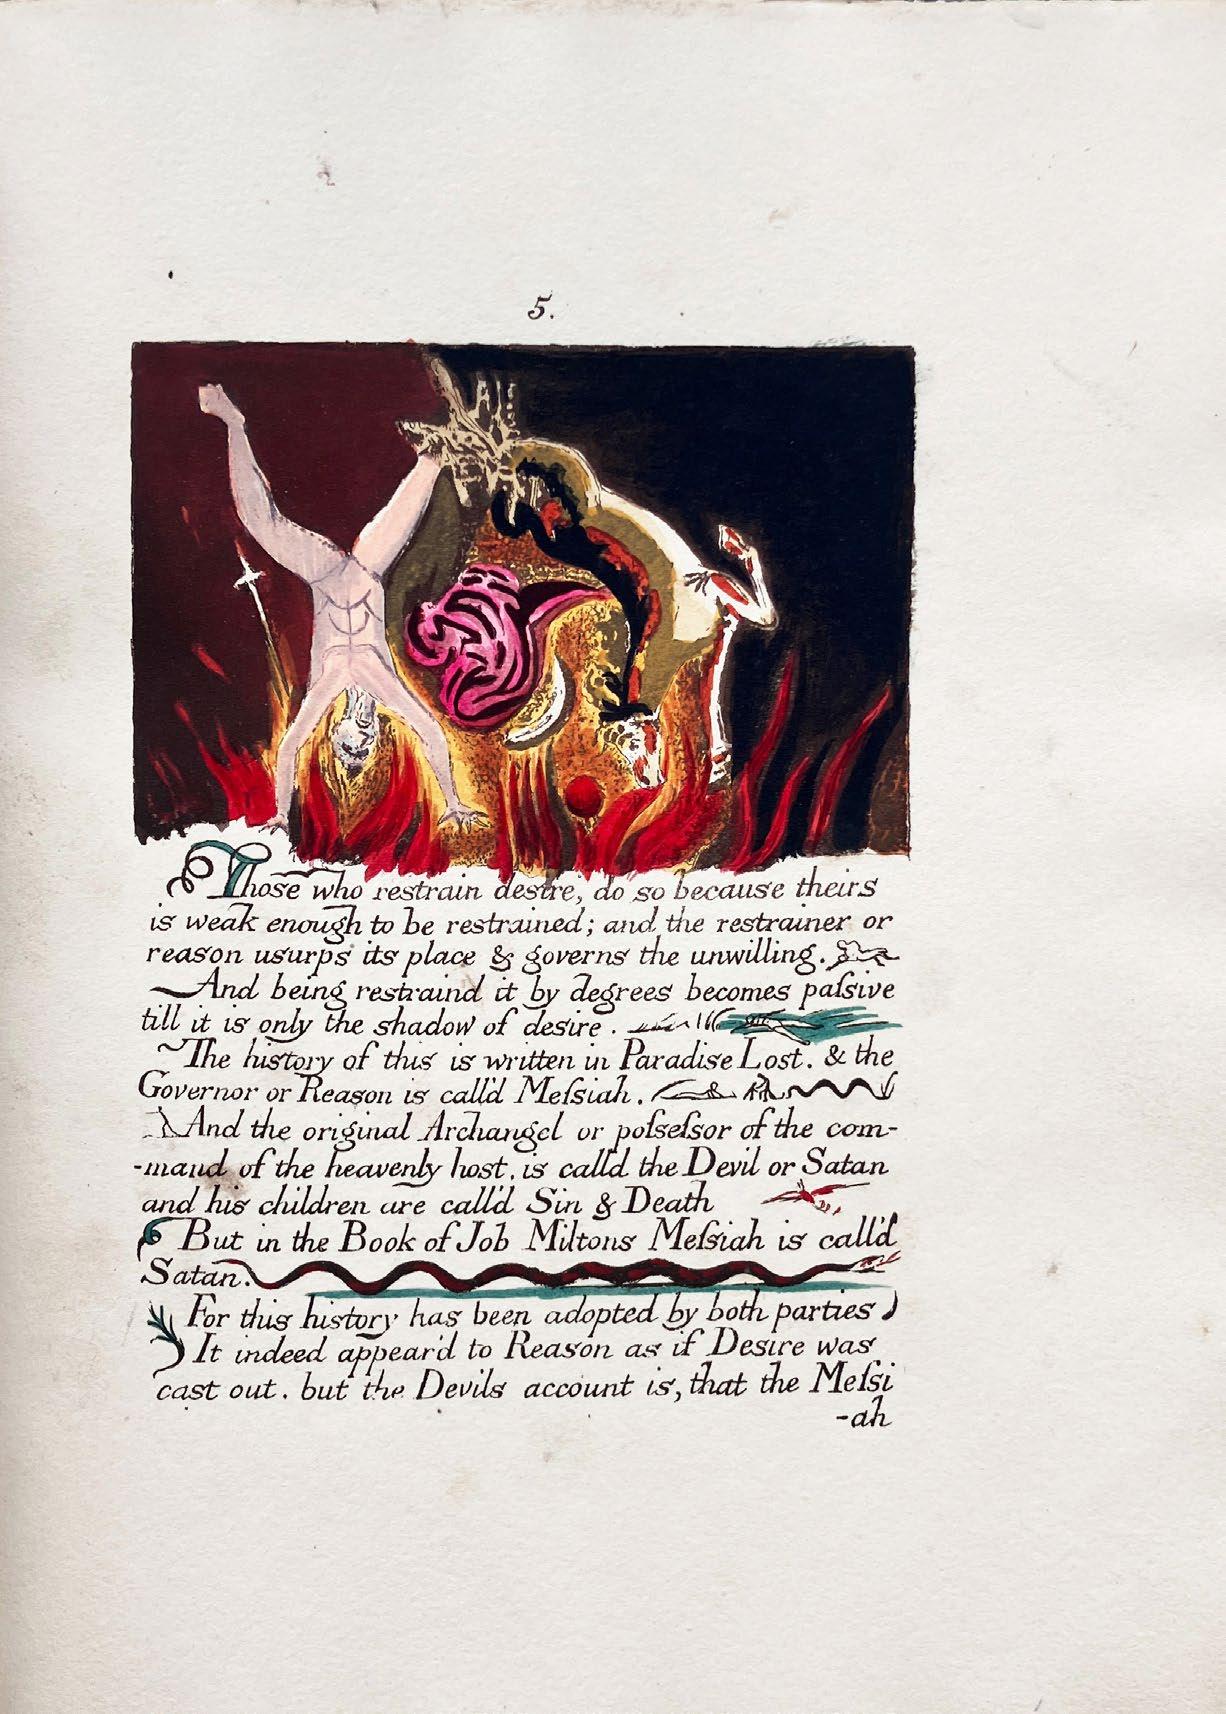 5.
Those who restrain desire, do so because theirs
is weak enough to be restrained; and the restrainer or
reason usurps its place & governs the unwilling.
And being restraind it by degrees becomes paſsive
till it is only the shadow of desire.
The history of this is written in Paradise Lost. & the
Governor or Reason is call'd Meſsiah.
And the original Archangel or poſseſsor of the com-
-mand of the heavenly host, is calld the Devil or Satan
and his children are call'd Sin & Death
But in the Book of Job Miltons Meſsiah is call'd
Satan.
For this history has been adopted by both parties
It indeed appear'd to Reason as if Desire was
cast out. but the Devils account is, that the Meſsi
-ah